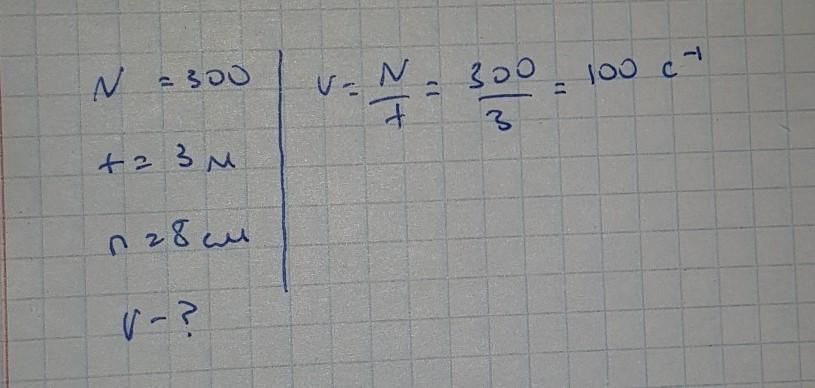 N = 300
t = 3 м
r = 8 см
V - ?
ν = N/t = 300/3 = 100 с⁻¹